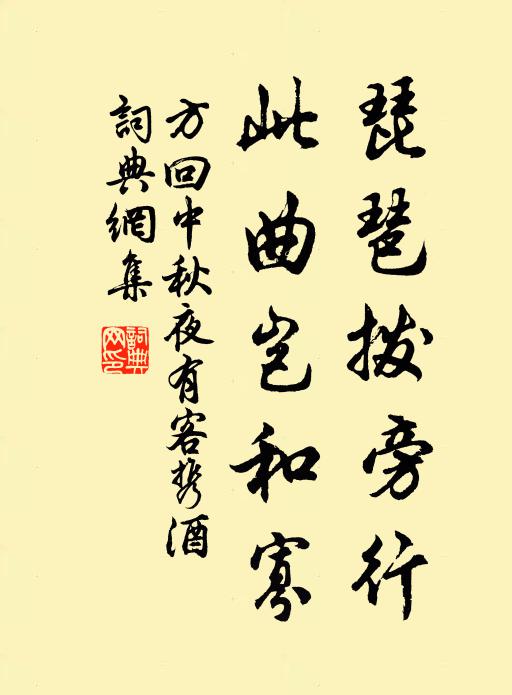 琵琶拨旁行
此曲岂和寡
方回中秋夜有客携酒
詞典網集
詞典网印